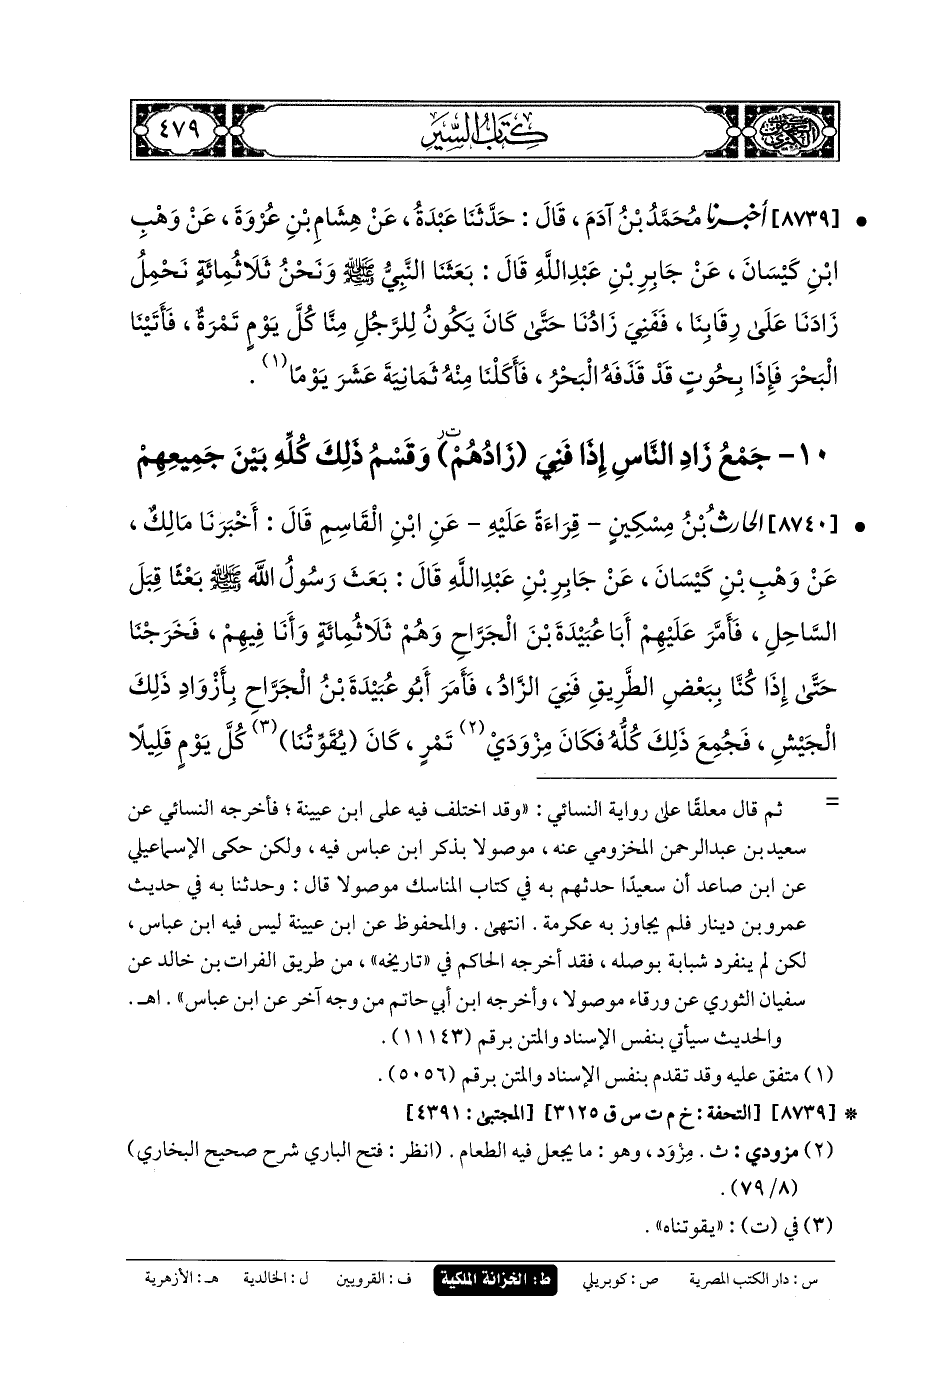 كتاب السير
٤٧٩
• [٨٧٣٩] أخبرنا مُحَمَّدُ بْنُ آدَمَ ، قَالَ : حَدَّثَنَا عَبْدَةُ ، عَنْ هِشَامِ بْنِ عُرْوَةَ ، عَنْ وَهْبِ
ابْنِ كَيْسَانَ ، عَنْ جَابِرِ بْنِ عَبْدِ اللَّهِ قَالَ : بَعَثَنَا النَّبِيُّ ﷺ وَنَحْنُ ثَلَاثُمِائَةٍ نَحْمِلُ
زَادَنَا عَلَى رِقَابِنَا ، فَفَنِيَ زَادُنَا حَتَّى كَانَ يَكُونُ لِلرَّجُلِ مِنَّا كُلَّ يَوْمٍ تَمْرَةٌ ، فَأَتَيْنَا
الْبَحْرَ فَإِذَا بِحُوتٍ قَدْ قَذَفَهُ الْبَحْرُ ، فَأَكَلْنَا مِنْهُ ثَمَانِيَةَ عَشَرَ يَوْمًا(١) .
١٠- جَمْعُ زَادِ النَّاسِ إِذَا فَنِيَ (زَادُهُمْ)ت ر وَقَسْمُ ذَلِكَ كُلِّهِ بَيْنَ جَمِيعِهِمْ
• [٨٧٤٠] الحَارِثُ بْنُ مِسْكِينٍ - قِرَاءَةً عَلَيْهِ - عَنِ ابْنِ الْقَاسِمِ قَالَ : أَخْبَرَنَا مَالِكٌ ،
عَنْ وَهْبِ بْنِ كَيْسَانَ ، عَنْ جَابِرِ بْنِ عَبْدِ اللَّهِ قَالَ : بَعَثَ رَسُولُ اللَّه ﷺ بَعْثًا قِبَلَ
السَّاحِلِ ، فَأَمَّرَ عَلَيْهِمْ أَبَا عُبَيْدَةَ بْنَ الْجَرَّاحِ وَهُمْ ثَلَاثُمِائَةٍ وَأَنَا فِيهِمْ ، فَخَرَجْنَا
حَتَّى إِذَا كُنَّا بِبَعْضِ الطَّرِيقِ فَنِيَ الزَّادُ ، فَأَمَرَ أَبُو عُبَيْدَةَ بْنُ الْجَرَّاحِ بِأَزْوَادِ ذَلِكَ
الْجَيْشِ ، فَجُمِعَ ذَلِكَ كُلُّهُ فَكَانَ مِزْوَدَيْ(٢) تَمْرٍ ، كَانَ (يُقَوِّتُنَا)(٣) كُلَّ يَوْمٍ قَلِيلًا
= ثم قال معلقًا على رواية النسائي : «وقد اختلف فيه على ابن عيينة ؛ فأخرجه النسائي عن
سعيد بن عبدالرحمن المخزومي عنه ، موصولا بذكر ابن عباس فيه ، ولكن حكى الإسماعيلي
عن ابن صاعد أن سعيدًا حدثهم به في كتاب المناسك موصولا قال : وحدثنا به في حديث
عمرو بن دينار فلم يجاوز به عكرمة . انتهى . والمحفوظ عن ابن عيينة ليس فيه ابن عباس ،
لكن لم ينفرد شبابة بوصله ، فقد أخرجه الحاكم في «تاريخه» ، من طريق الفرات بن خالد عن
سفيان الثوري عن ورقاء موصولا ، وأخرجه ابن أبي حاتم من وجه آخر عن ابن عباس» . اهـ .
والحديث سيأتي بنفس الإسناد والمتن برقم (١١١٤٣) .
(١) متفق عليه وقد تقدم بنفس الإسناد والمتن برقم (٥٠٥٦) .
* [٨٧٣٩] [التحفة : خ م ت س ق ٣١٢٥] [المجتبى : ٤٣٩١]
(٢) مزودي : ث . مِزْوَد ، وهو : ما يجعل فيه الطعام . (انظر : فتح الباري شرح صحيح البخاري)
(٨/ ٧٩) .
(٣) في (ت) : «يقوتناه» .
س : دار الكتب المصرية ص : كوبريلي ط : الخزانة الملكية ف : القرويين ل : الخالدية هـ : الأزهرية